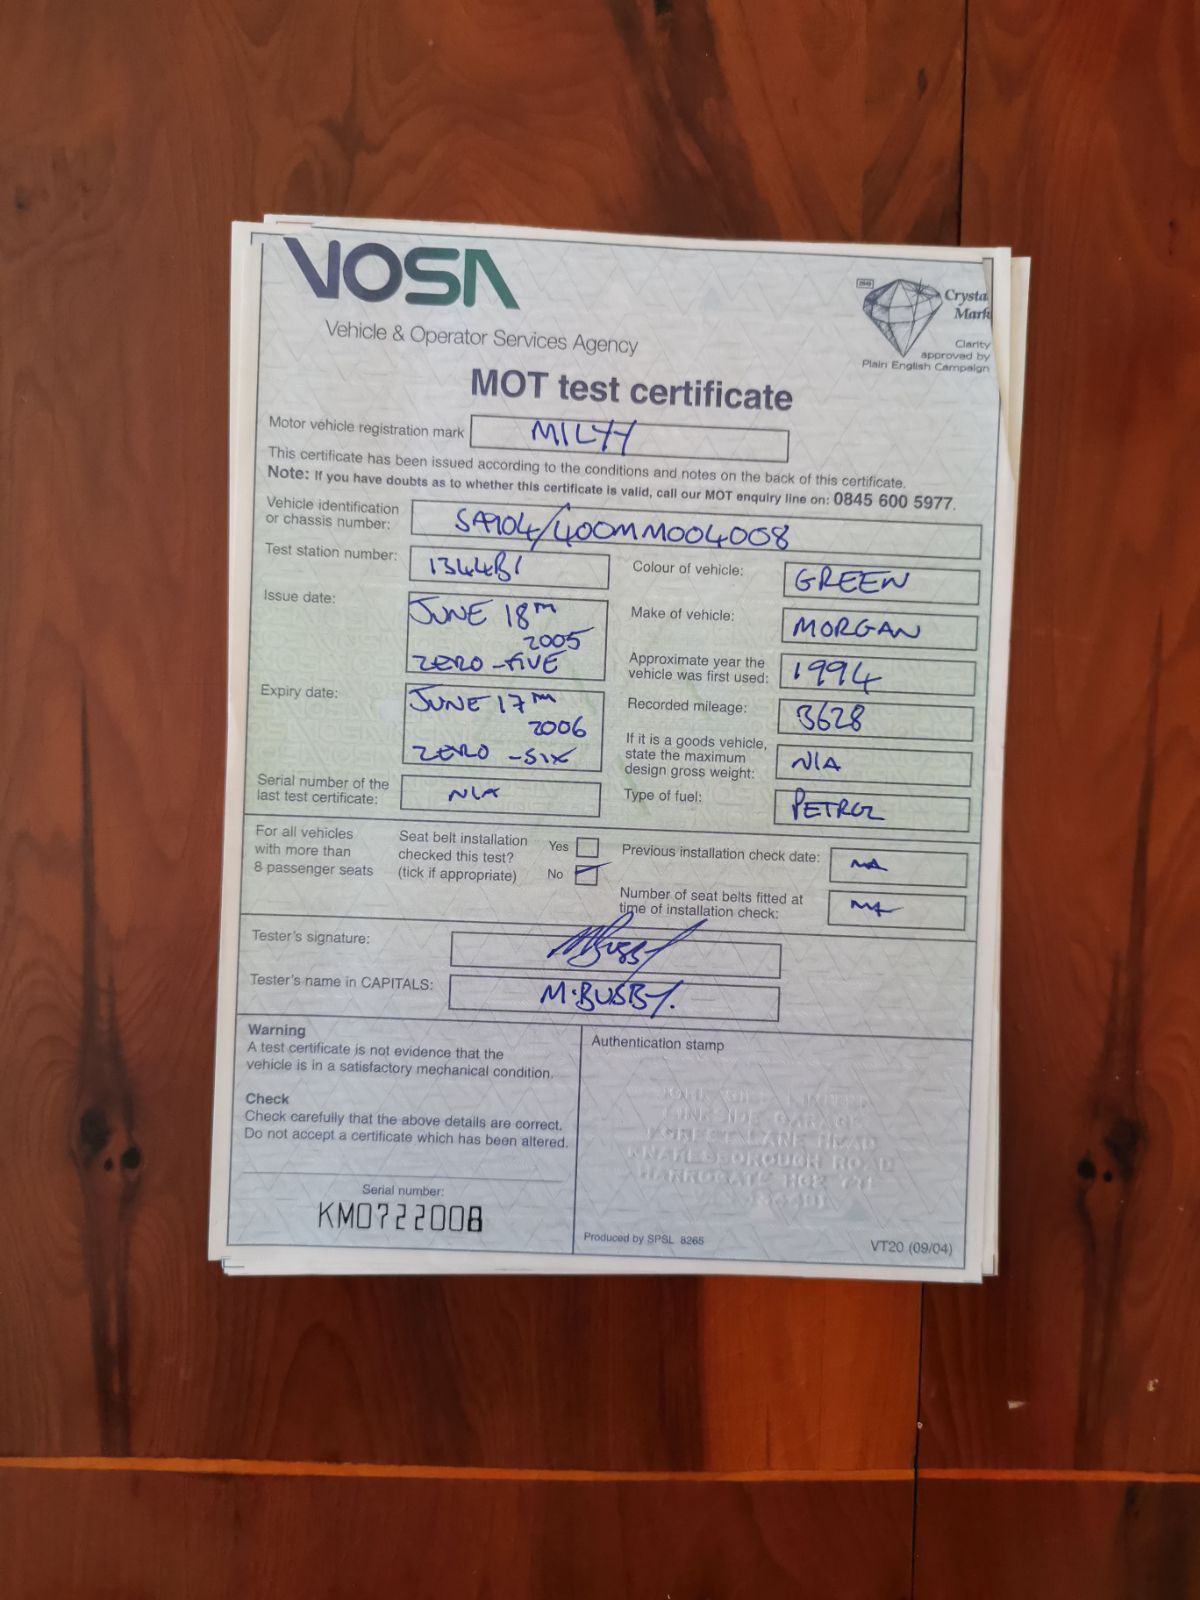 VOSA
Vehicle & Operator Services Agency
Crystal
Mark
Clarity
approved by
Plain English Campaign
MOT test certificate
Motor vehicle registration mark MILYY
This certificate has been issued according to the conditions and notes on the back of this certificate.
Note: If you have doubts as to whether this certificate is valid, call our MOT enquiry line on: 0845 600 5977.
Vehicle identification
or chassis number: SA9104/400MM004008
Test station number: 1344B1
Colour of vehicle: GREEN
Issue date: JUNE 18TH
2005
ZERO-FIVE
Make of vehicle: MORGAN
Approximate year the
vehicle was first used: 1994
Expiry date: JUNE 17TH
2006
ZERO-SIX
Recorded mileage: 3628
If it is a goods vehicle,
state the maximum
design gross weight: N/A
Serial number of the
last test certificate: N/A
Type of fuel: PETROL
For all vehicles
with more than
8 passenger seats
Seat belt installation
checked this test?
(tick if appropriate)
Yes
No
Previous installation check date: NA
Number of seat belts fitted at
time of installation check: NA
Tester's signature: M Busby
Tester's name in CAPITALS: M.BUSBY.
Warning
A test certificate is not evidence that the
vehicle is in a satisfactory mechanical condition.
Check
Check carefully that the above details are correct.
Do not accept a certificate which has been altered.
Serial number:
KM0722008
Authentication stamp
GARAGE
FOREST LANE HEAD
KNARESBOROUGH ROAD
HARROGATE HG2
Produced by SPSL 8265
VT20 (09/04)